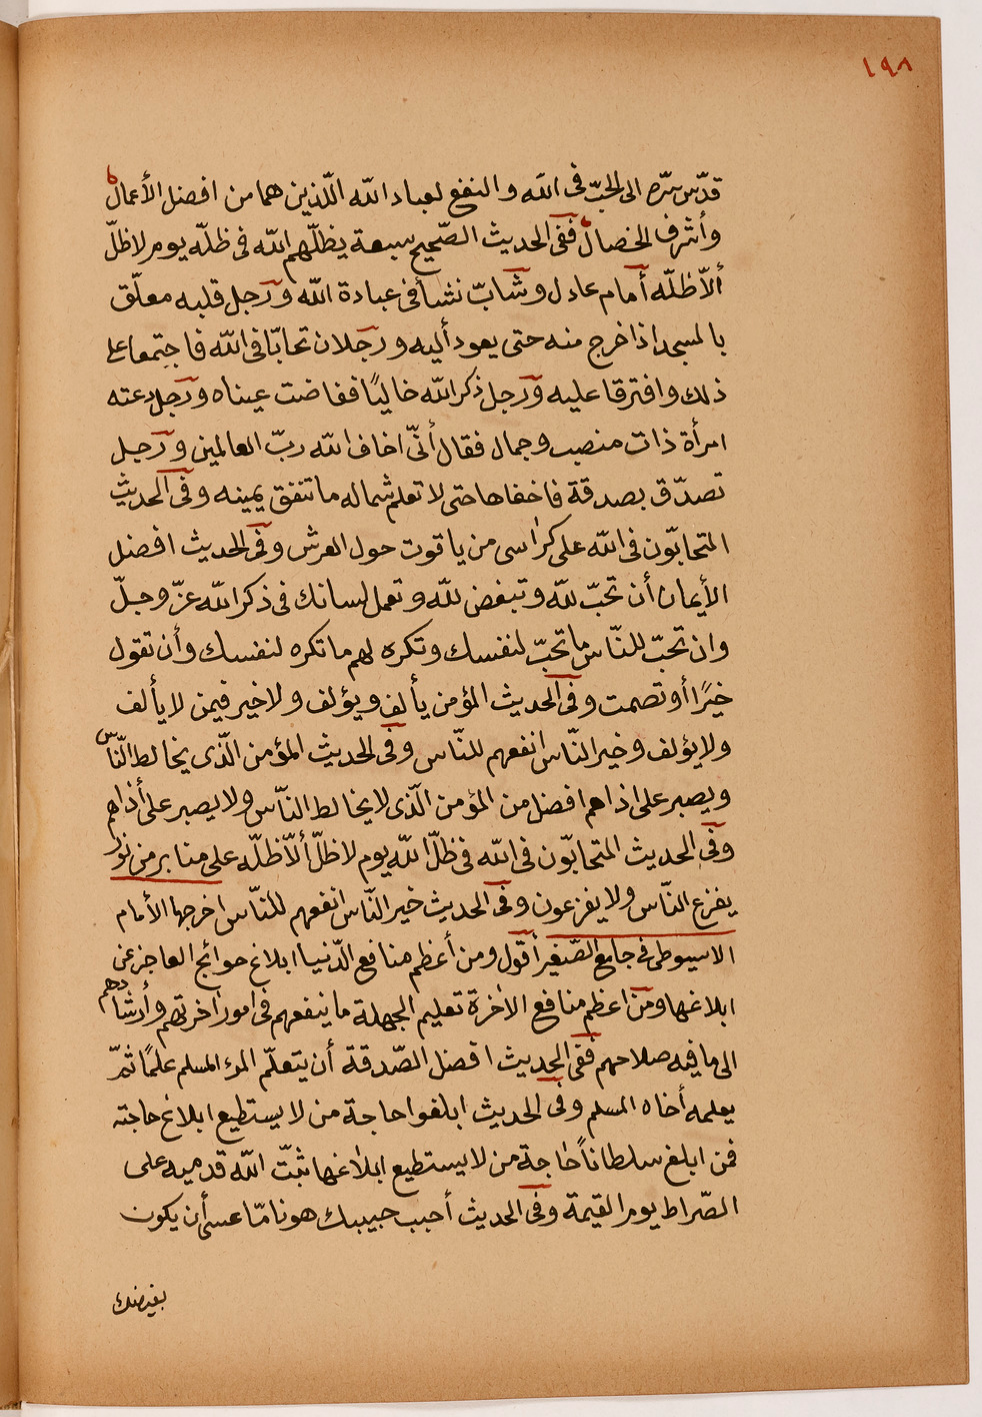 ١٩٨
قدّس سرّه الى الحبّ فى الله والنفع لعباد الله اللّذين هما من افضل الأعمال
وأشرف الخصال ففى الحديث الصّحيح سبعة يظلّهم الله فى ظلّه يوم لا ظلّ
ألاّ ظلّه أمام عادل وشابّ نشأ فى عبادة الله ورجل قلبه معلّق
بالمسجد اذا خرج منه حتى يعود أليه ورجلان تحابّا فى الله فاجتمعا على
ذلك وافترقا عليه ورجل ذكر الله خاليًا ففاضت عيناه ورجل دعته
امرأة ذات منصب وجمال فقال أنّى اخاف الله ربّ العالمين ورجل
تصدّق بصدقة فاخفاها حتى لا تعلم شماله ما تنفق يمينه وفى الحديث
المتحابّون فى الله على كراسى من ياقوت حول العرش وفى الحديث افضل
الأيمان أن تحبّ للّه وتبغض للّه وتعمل لسانك فى ذكر الله عزّ وجلّ
وان تحبّ للنّاس ما تحبّ لنفسك وتكره لهم ما تكره لنفسك وأن تقول
خيرًا أو تصمت وفى الحديث المؤمن يألف ويؤلف ولا خير فيمن لا يألف
ولا يؤلف وخير النّاس انفعهم للنّاس وفى الحديث المؤمن الّذى يخالط النّاس
ويصبر على اذاهم افضل من المؤمن الّذى لا يخالط النّاس ولا يصبر على أذاهم
وفى الحديث المتحابّون فى الله فى ظلّ الله يوم لا ظلّ ألاّ ظلّه على منابر من نور
يفزع النّاس ولا يفزعون وفى الحديث خير النّاس انفعهم للنّاس اخرجها الأمام
الاسيوطى فى جامع الصّغير أقول ومن أعظم منافع الدّنيا ابلاغ حوائج العاجز عن
ابلاغها ومن اعظم منافع الاخرة تعليم الجهلة ما ينفعهم فى امور اخرتهم وأرشادهم
الى ما فيه صلاحهم ففى الحديث افضل الصّدقة أن يتعلّم المرء المسلم علمًا ثمّ
يعلمه أخاه المسلم وفى الحديث ابلغوا حاجة من لا يستطيع ابلاغ حاجته
فمن ابلغ سلطاناً حاجة من لا يستطيع ابلاغها ثبّت الله قدميه على
الصّراط يوم القيمة وفى الحديث أحبب حبيبك هونا مّا عسى أن يكون
بغيضك